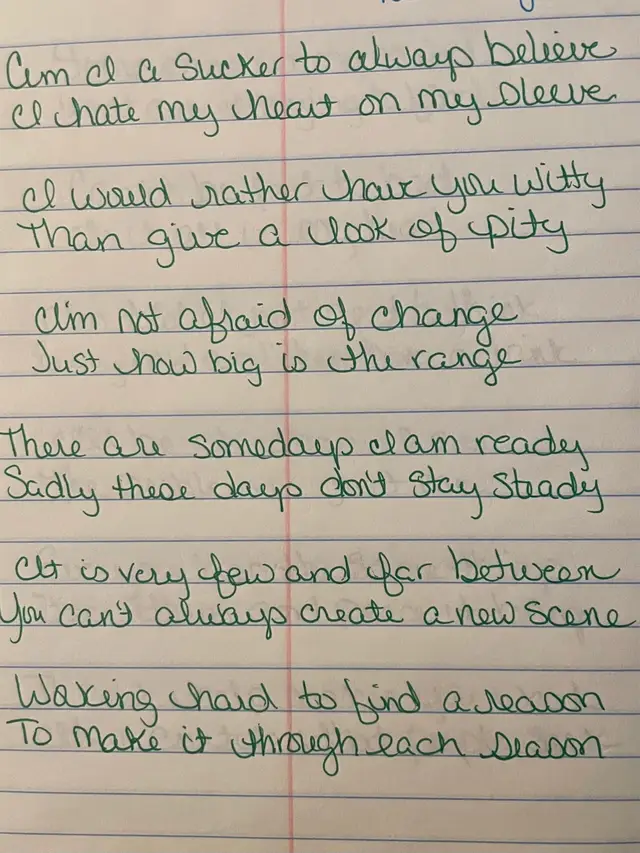 Am I a sucker to always believe
I hate my heart on my sleeve
I would rather have you witty
Than give a look of pity
I'm not afraid of change
Just how big is the range
There are somedays I am ready
Sadly these days don't stay steady
It is very few and far between
You can't always create a new scene
Waking hard to find a reason
To make it through each season